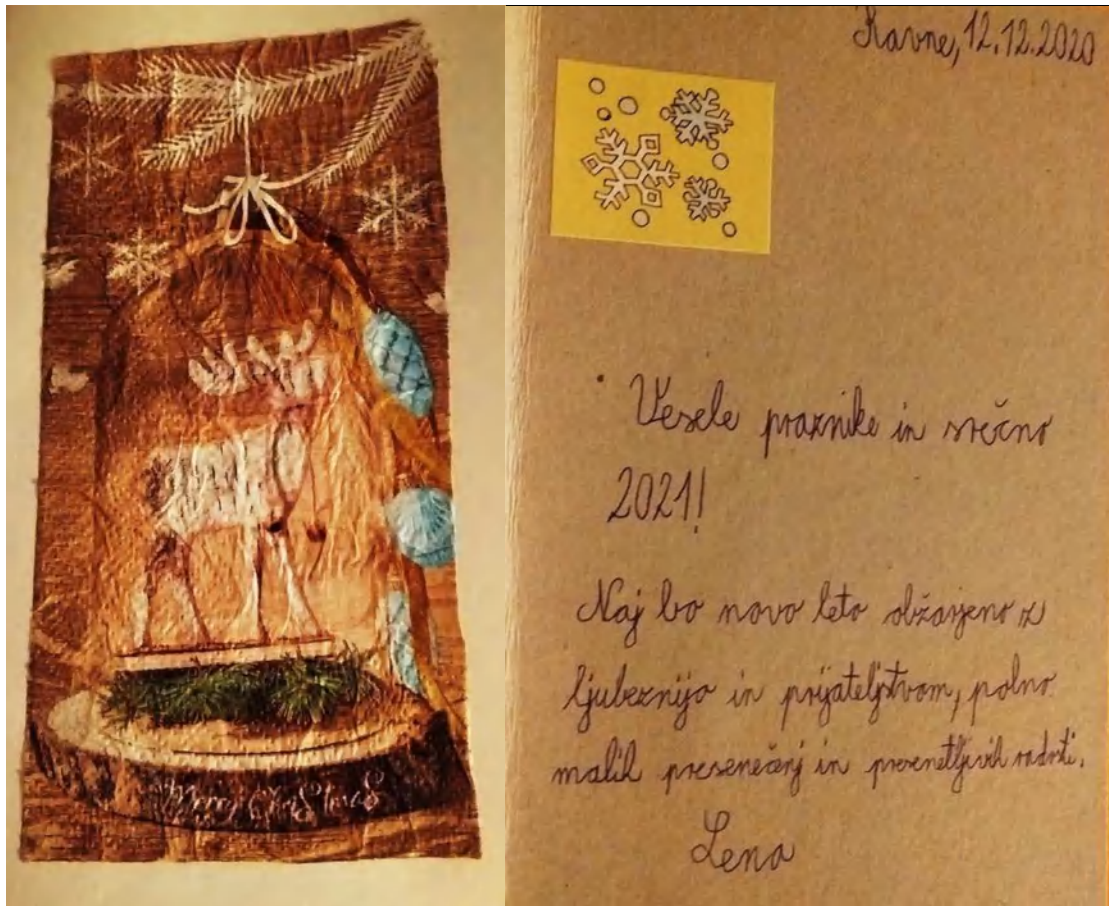 Merry Christmas
Ravne, 12.12.2020
Vesele praznike in srečno
2021!
Naj bo novo leto obžarjeno z
ljubeznijo in prijateljstvom, polno
malih presenečenj in presenetljivih radosti.
Lena